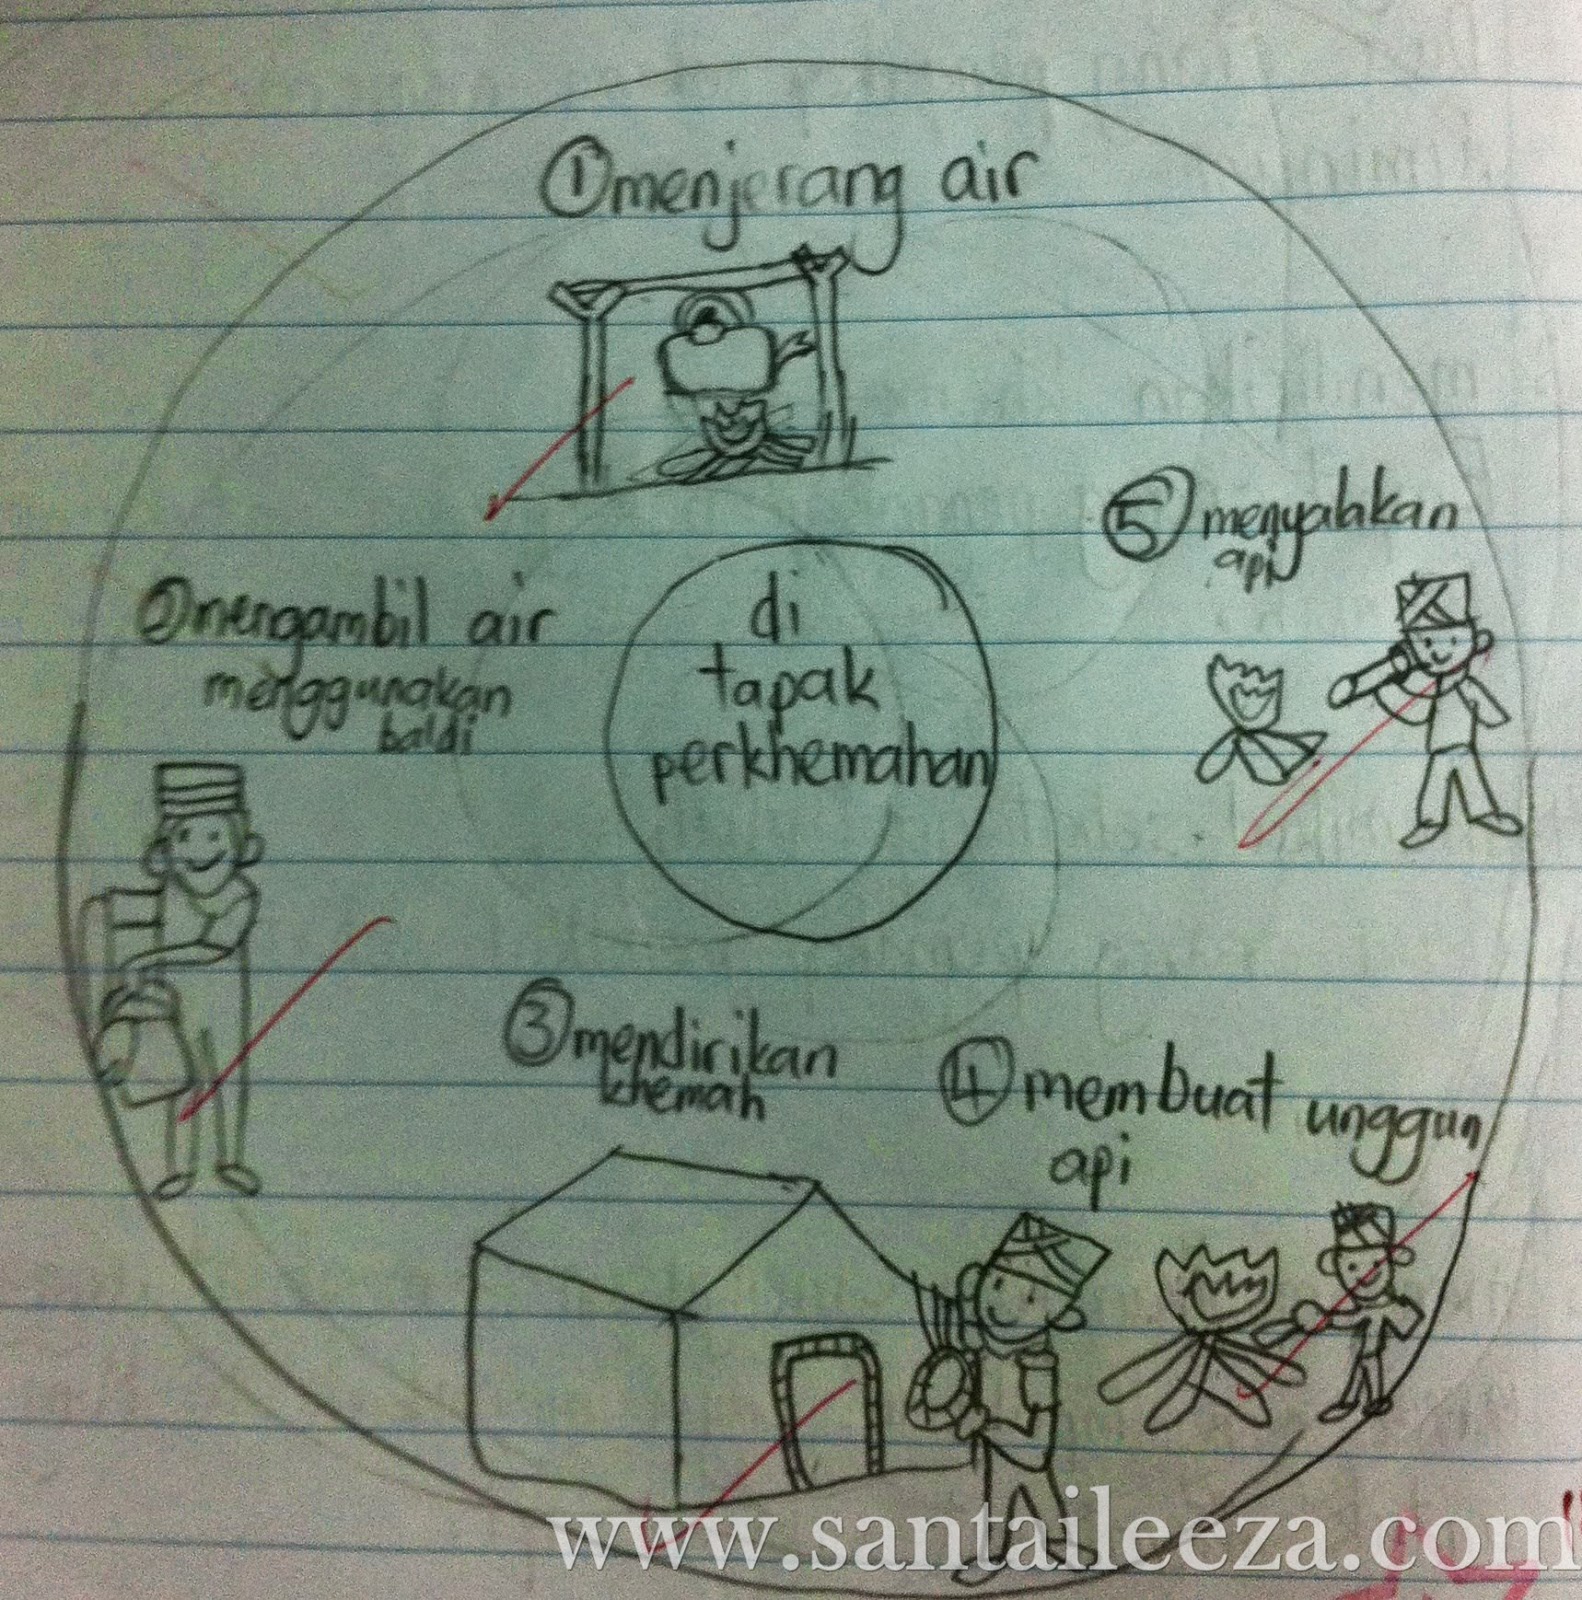 ① menjerang air
⑤ menyalakan
api
② mengambil air
menggunakan
baldi
di
tapak
perkhemahan
③ mendirikan
khemah
④ membuat unggun
api
www.santaileeza.com